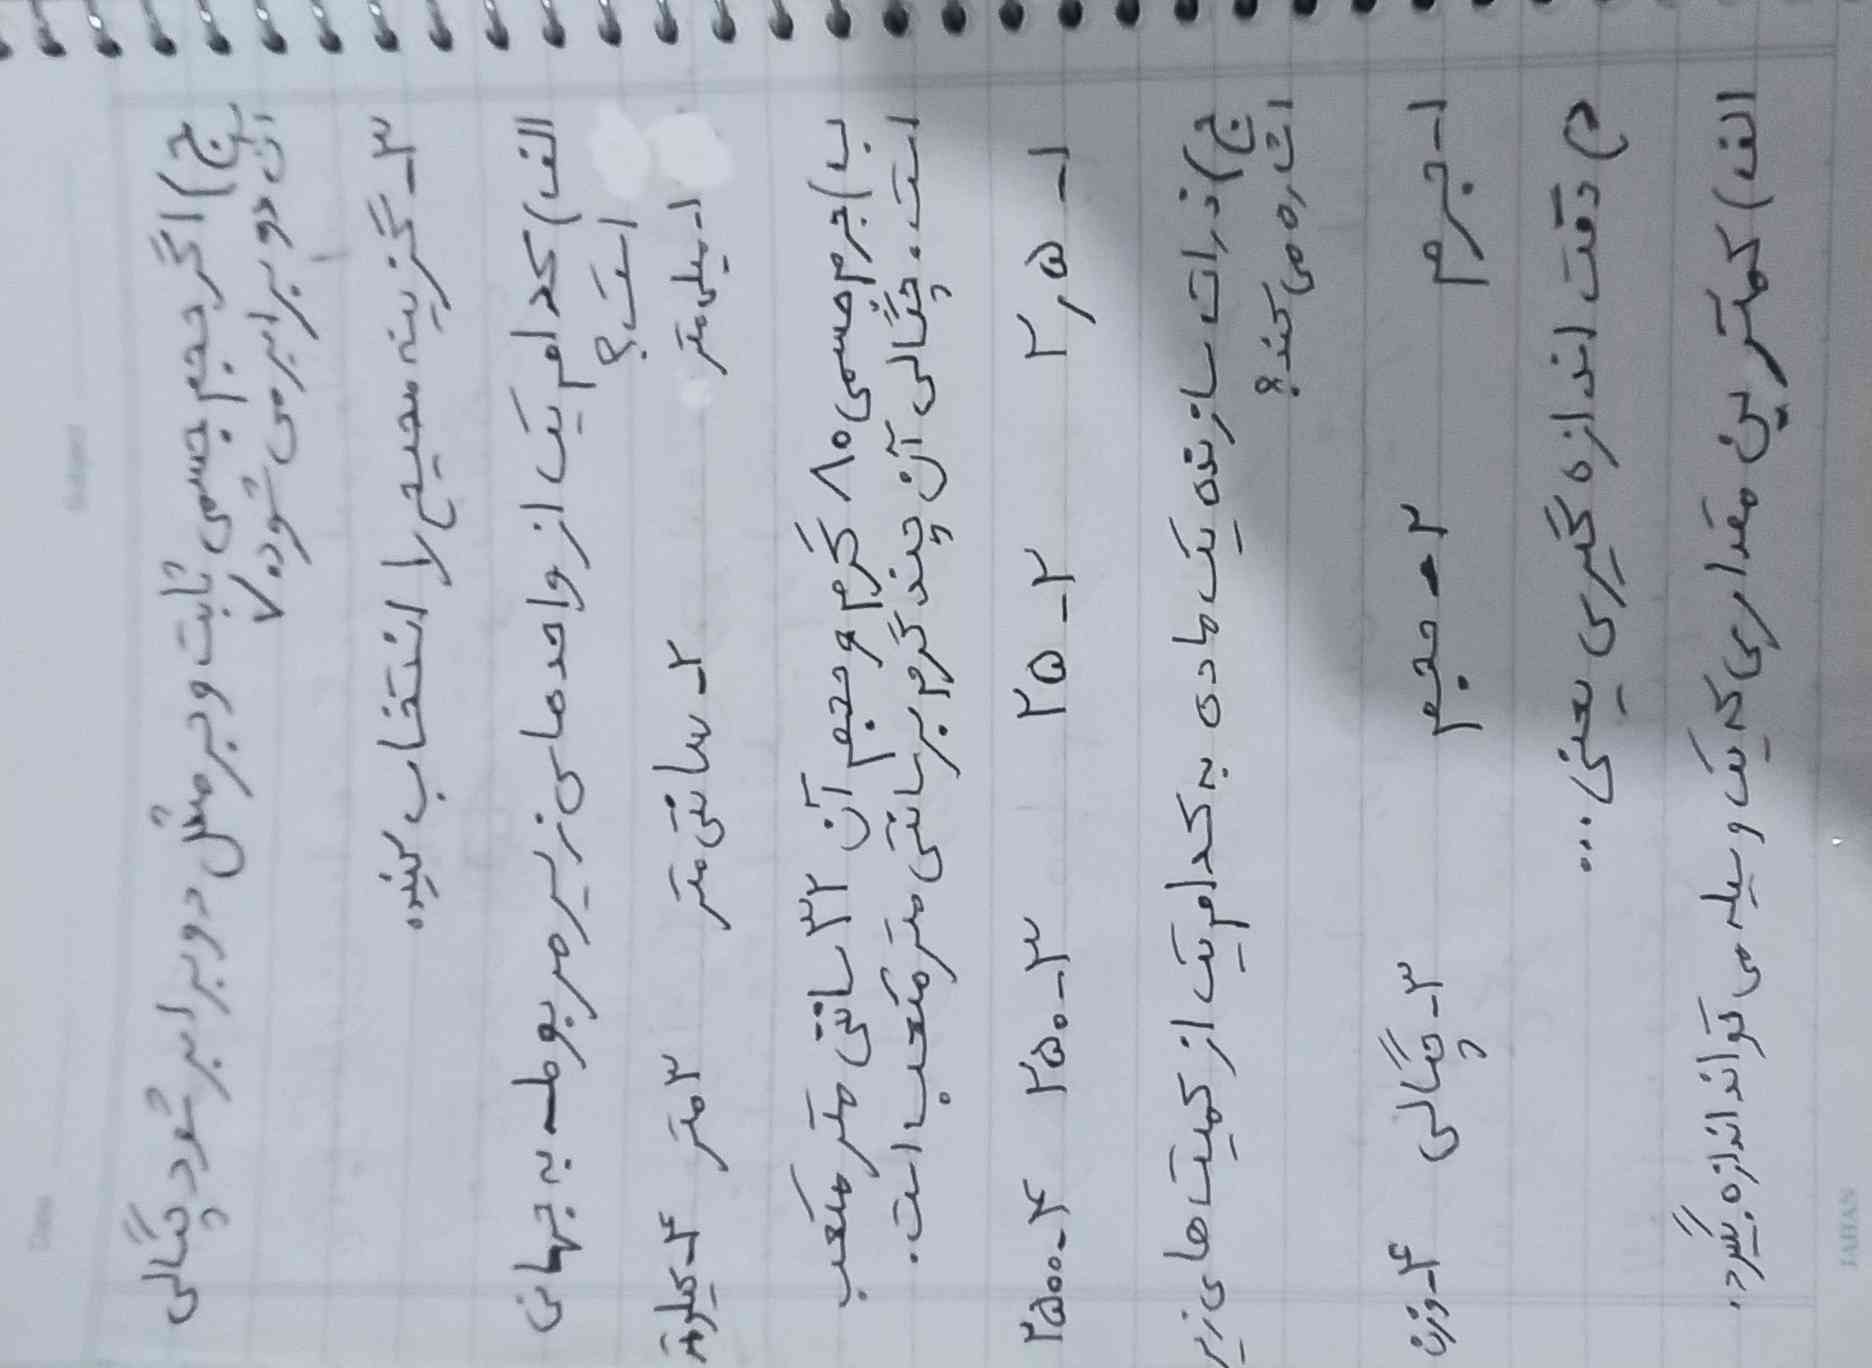 ج) اگر حجم جسمی ثابت و جرمش دو برابر شود چگالی
آن دو برابر می شود. ✓
۳- گزینه صحیح را انتخاب کنید.
الف) کدام یک از واحدهای زیر مربوط به جهانی
است؟
۱- میلی متر ۲- سانتی متر ۳ متر ۴- کیلومتر
ب) جرم جسمی ۸۰ گرم و حجم آن ۳۲ سانتی متر مکعب
است. چگالی آن چند گرم بر سانتی متر مکعب است.
۱- ۲,۵ ۲- ۲۵ ۳- ۲۵۰ ۴- ۲۵۰۰
ج) ذرات سازنده یک ماده به کدام یک از کمیت های زیر
اشاره می کند؟
۱- جرم ۲- حجم ۳- چگالی ۴- وزن
د) دقت اندازه گیری یعنی ...
الف) کمترین مقداری که یک وسیله می تواند اندازه بگیرد.
JAHAN